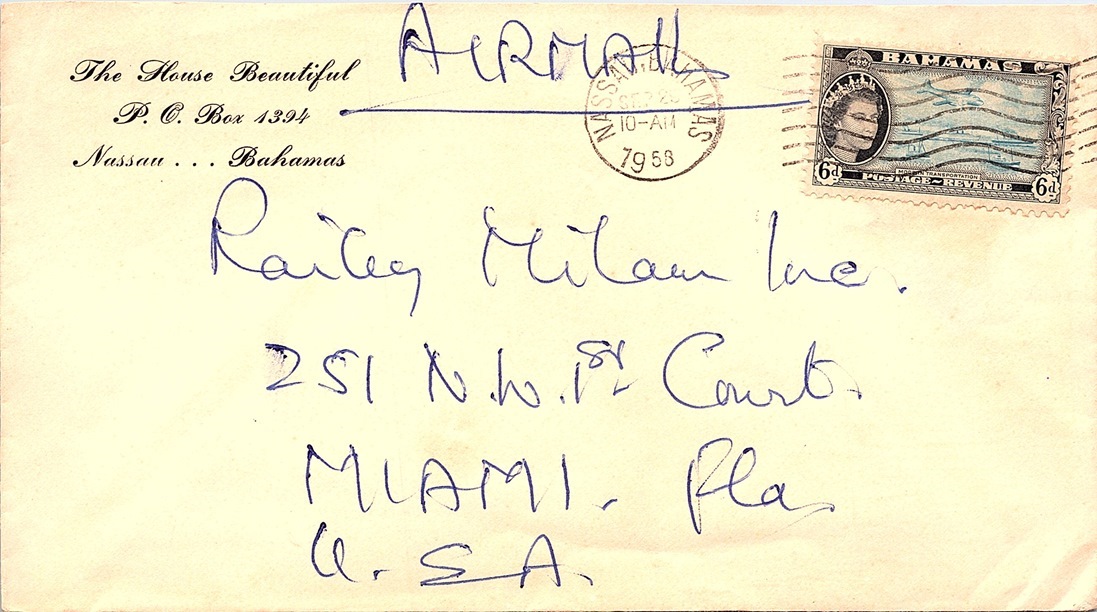 AIRMAIL
The House Beautiful
P. O. Box 1394
Nassau . . . Bahamas
NASSAU, BAHAMAS
10-AM
1958
BAHAMAS
MODERN TRANSPORTATION
6d POSTAGE & REVENUE 6d
Railey Milam Inc.
251 N.W. 1st Court.
MIAMI. Fla.
U.S.A.